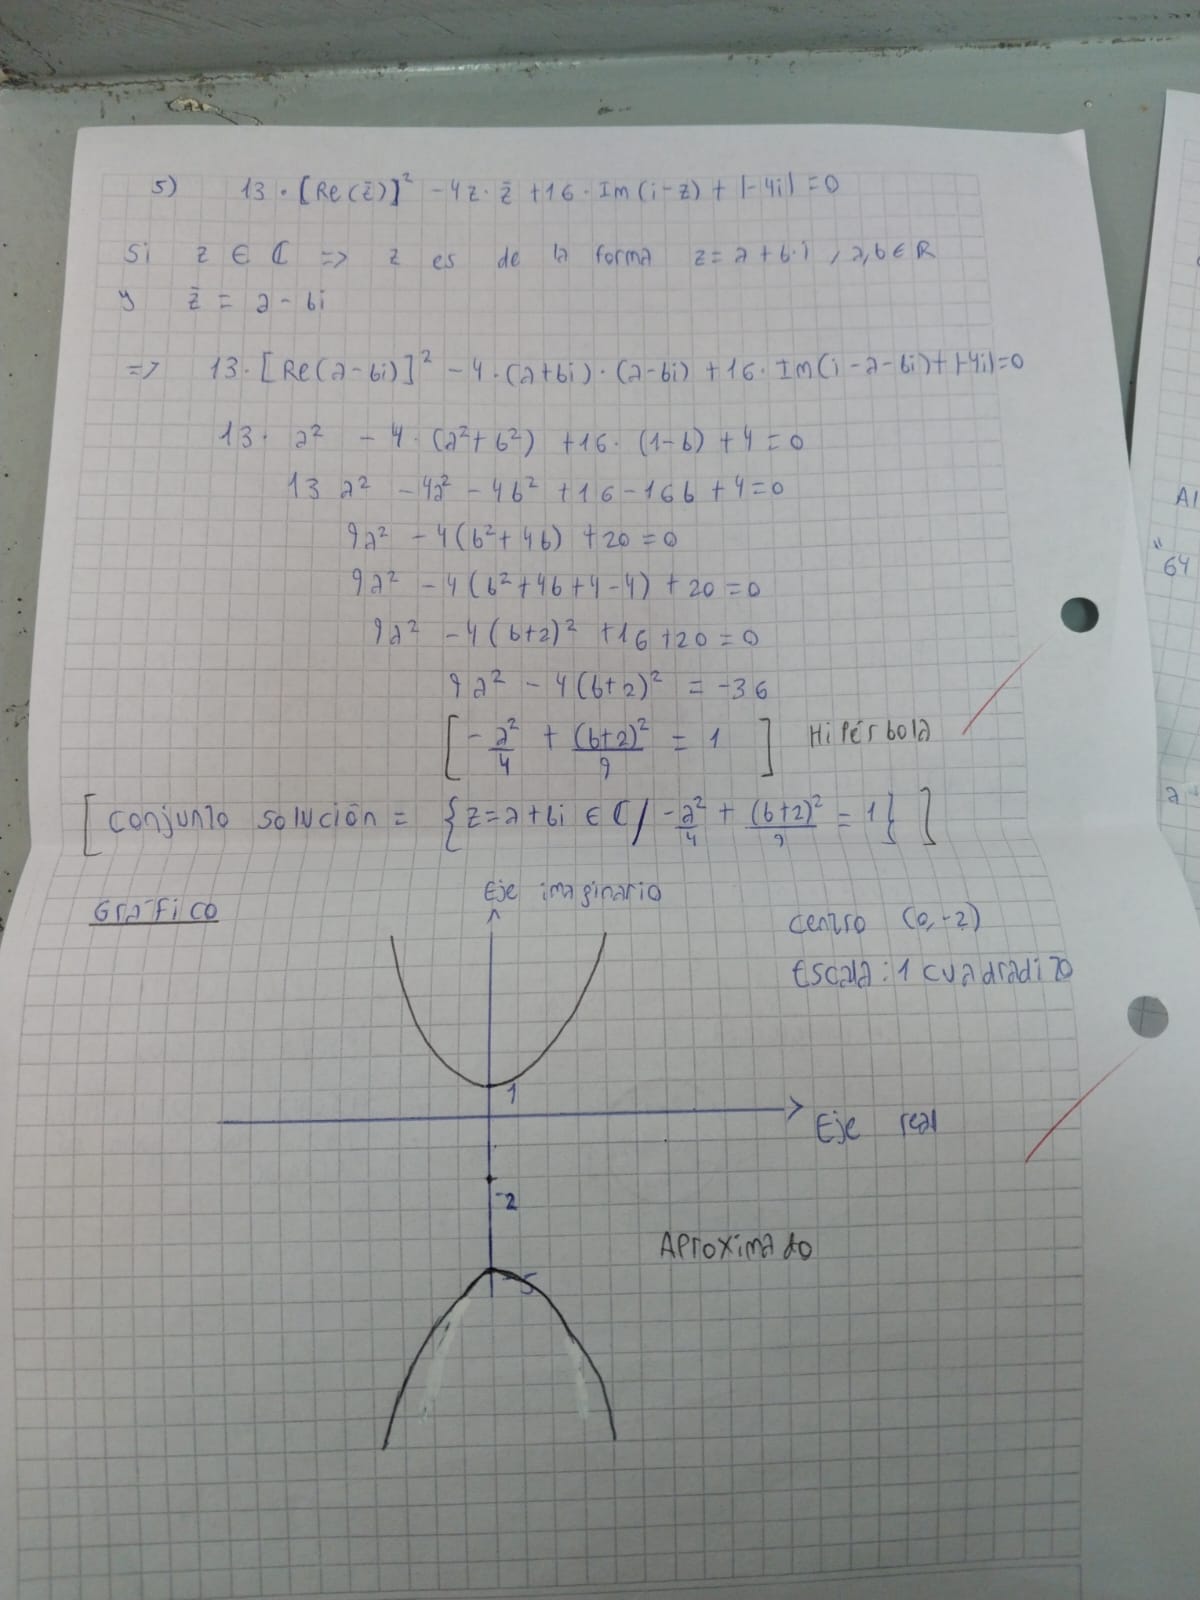 5) 13·[Re(z̄)]² -4z·z̄ +16·Im(i-z) + |-4i| = 0
Si z ∈ ℂ => z es de la forma z = a + b·i , a,b ∈ R
y z̄ = a - bi
=> 13·[Re(a-bi)]² - 4·(a+bi)·(a-bi) + 16·Im(i-a-bi) + |-4i| = 0
13· a² - 4·(a²+b²) +16·(1-b) + 4 = 0
13 a² - 4a² - 4b² + 16 - 16b + 4 = 0
9a² - 4(b²+4b) + 20 = 0
9a² - 4(b²+4b+4-4) + 20 = 0
9a² - 4(b+2)² + 16 + 20 = 0
9a² - 4(b+2)² = -36
[ -a²/4 + (b+2)²/9 = 1 ] Hipérbola
[ conjunto solución = {z = a+bi ∈ ℂ / -a²/4 + (b+2)²/9 = 1} ]
Gráfico
Eje imaginario
centro (0,-2)
Escala: 1 cuadradito
1
Eje real
-2
Aproximado
-5
64
a